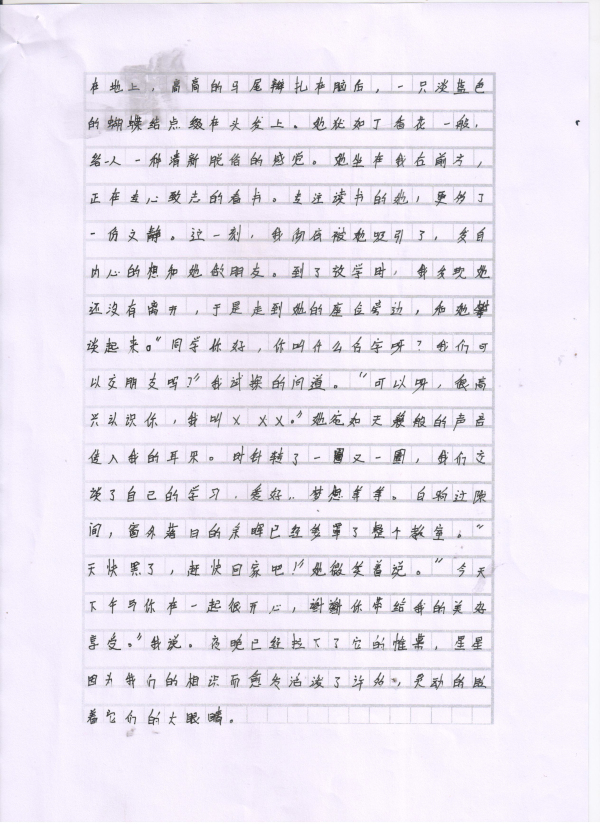 在地上，高高的马尾辫扎在脑后，一只淡蓝色
的蝴蝶结点缀在头发上。她犹如丁香花一般，
给人一种清新脱俗的感觉。她坐在我右前方，
正在专心致志的看书。专注读书的她，更多了
一份文静。这一刻，我彻底被她吸引了，发自
内心的想和她做朋友。到了放学时，我发现她
还没有离开，于是走到她的座位旁边，和她攀
谈起来。“同学你好，你叫什么名字呀？我们可
以交朋友吗？”我试探的问道。“可以呀，很高
兴认识你，我叫×××。”她宛如天籁般的声音
进入我的耳朵。时针转了一圈又一圈，我们交
谈了自己的学习，爱好，梦想等等。白驹过隙
间，窗外落日的余晖已经笼罩了整个教室。“
天快黑了，赶快回家吧！”她微笑着说。“今天
下午与你在一起很开心，谢谢你带给我的美好
享受。”我说。夜晚已经拉下了它的帷幕，星星
因为我们的相识而愈发活泼了许多，灵动的眨
着它们的大眼睛。